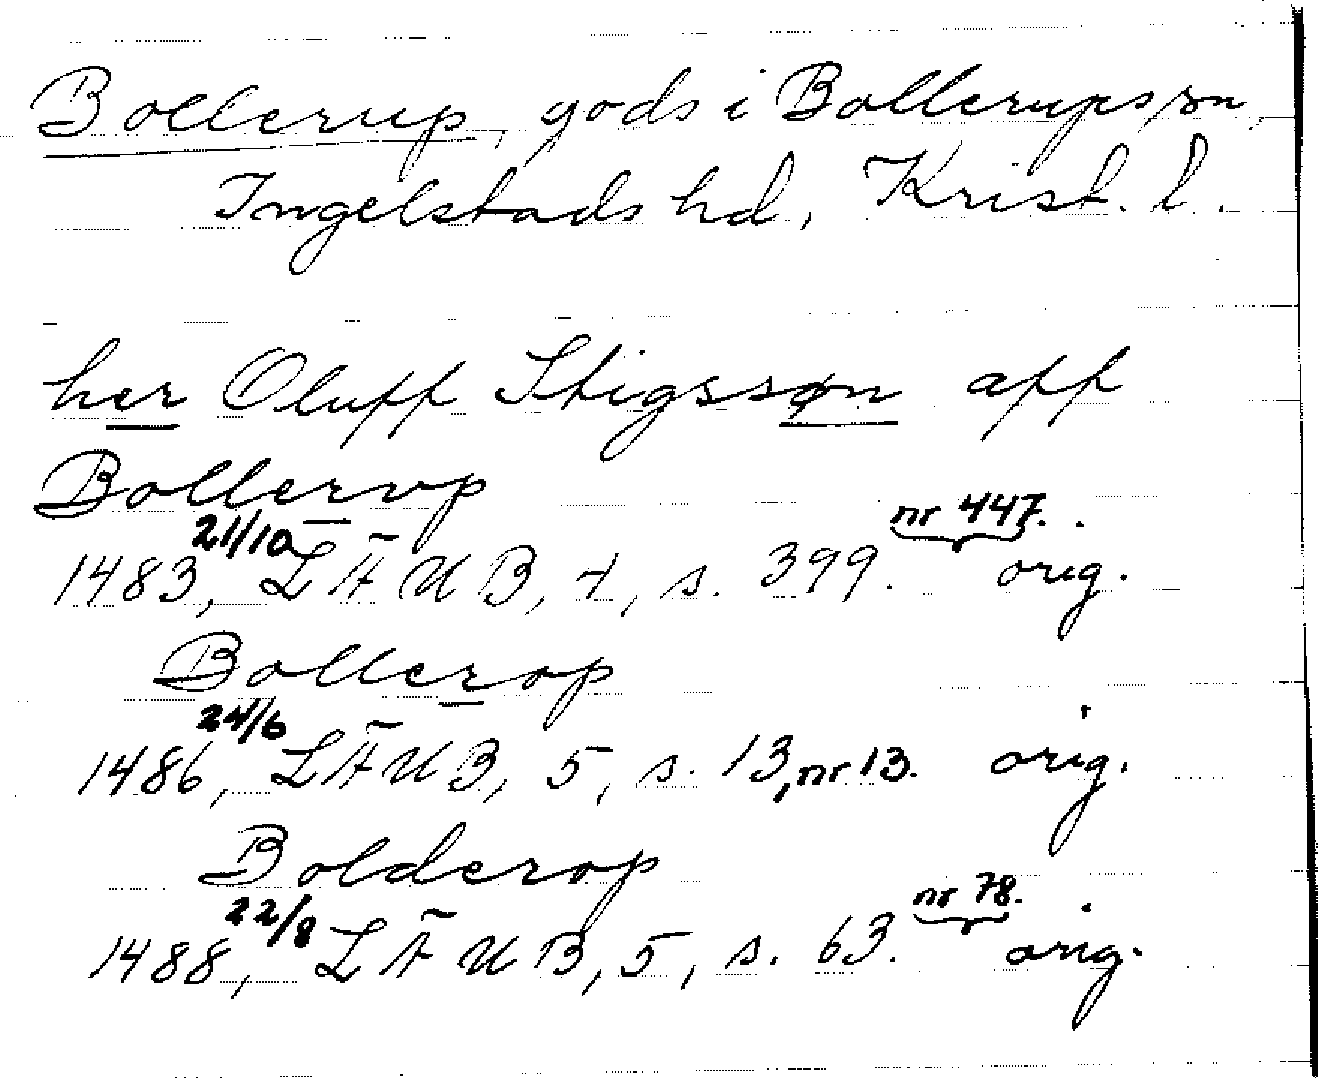 Bollerup, gods i Bollerups sn,
Ingelstads hd, Krist. l.
her Oluff Stigssøn aff
Bollerup
1483, 21/10 LÄUB, 4, s. 399. nr 447. orig.
Bollerop
1486, 24/6 LÄUB, 5, s. 13, nr 13. orig.
Bolderop
1488, 22/8 LÄUB, 5, s. 63. nr 78. orig.